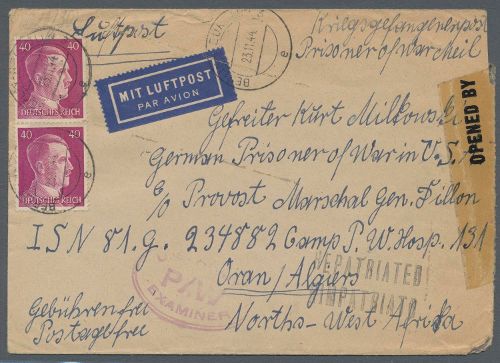 Luftpost
Kriegsgefangenenpost
Prisoner of war Meil
40 40
DEUTSCHES REICH
40 40
DEUTSCHES REICH
23.11.44
MIT LUFTPOST
PAR AVION
OPENED BY
Gefreiter Kurt Milkowski
German Prisoner of War in U.S.
c/o Provost Marschal Gen. Dillon
ISN 81.G. 234882 Camp P.W. Hosp. 131
Oran/Algiers
Norths-West Afrika
REPATRIATED
P/W
EXAMINER
Gebührenfrei
Postagefrei